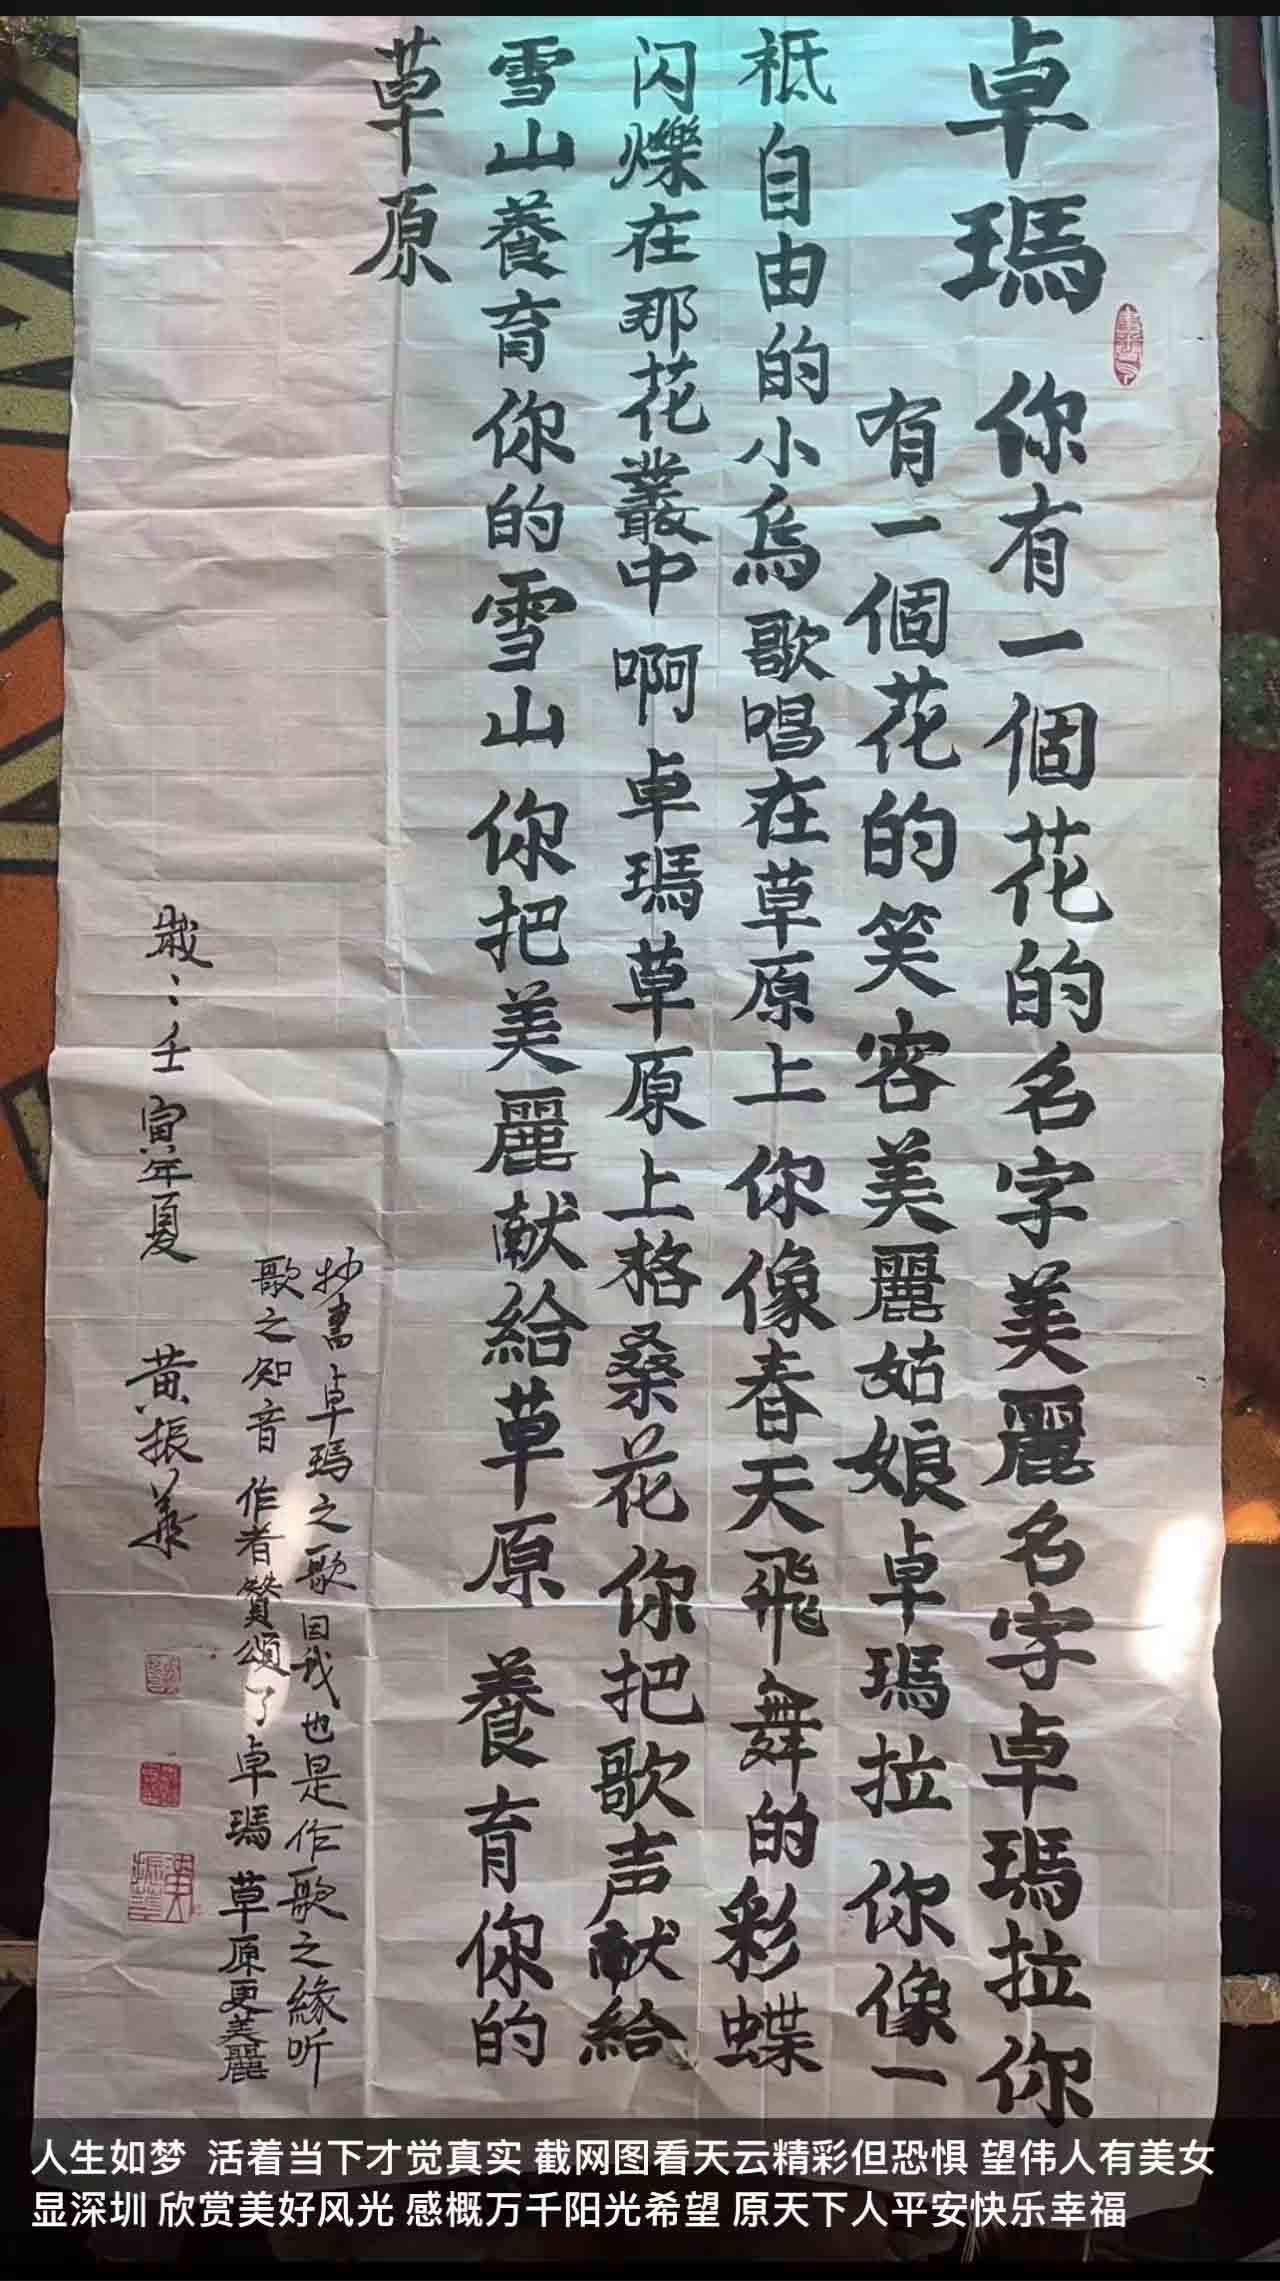 卓瑪 你有一個花的名字美麗名字卓瑪拉你
有一個花的笑容美麗姑娘卓瑪拉 你像一
祗自由的小鳥歌唱在草原上 你像春天飛舞的彩蝶
闪爍在那花叢中 啊卓瑪草原上格桑花你把歌声献給
雪山養育你的雪山 你把美麗献給草原 養育你的
草原
抄書卓瑪之歌因我也是作歌之緣听
歌之知音 作者贊頌了卓瑪草原更美麗
歲:壬寅年夏 黄振華
人生如梦 活着当下才觉真实 截网图看天云精彩但恐惧 望伟人有美女
显深圳 欣赏美好风光 感概万千阳光希望 原天下人平安快乐幸福